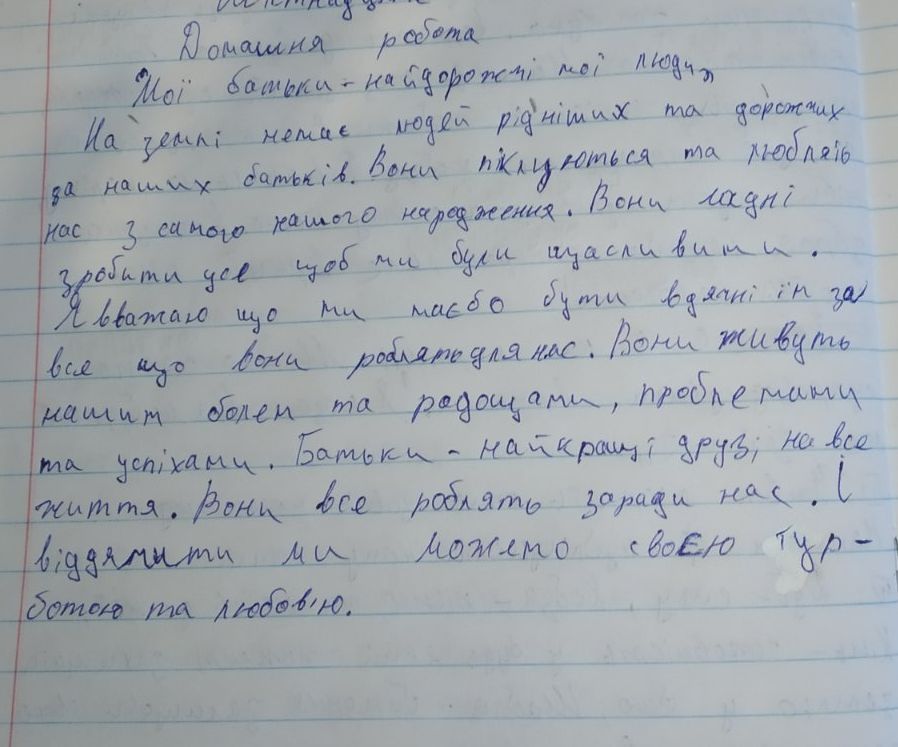 Домашня робота
"Мої батьки - найдорожчі мої люди"
На землі немає людей рідніших та дорожчих
за наших батьків. Вони піклуються та люблять
нас з самого нашого народження. Вони ладні
зробити усе щоб ми були щасливими.
Я вважаю що ми маєбо бути вдячні їм за
все що вони роблять для нас. Вони живуть
нашим болем та радощами, проблемами
та успіхами. Батьки - найкращі друзі на все
життя. Вони все роблять заради нас. І
віддячити ми можемо своєю тур-
ботою та любов'ю.